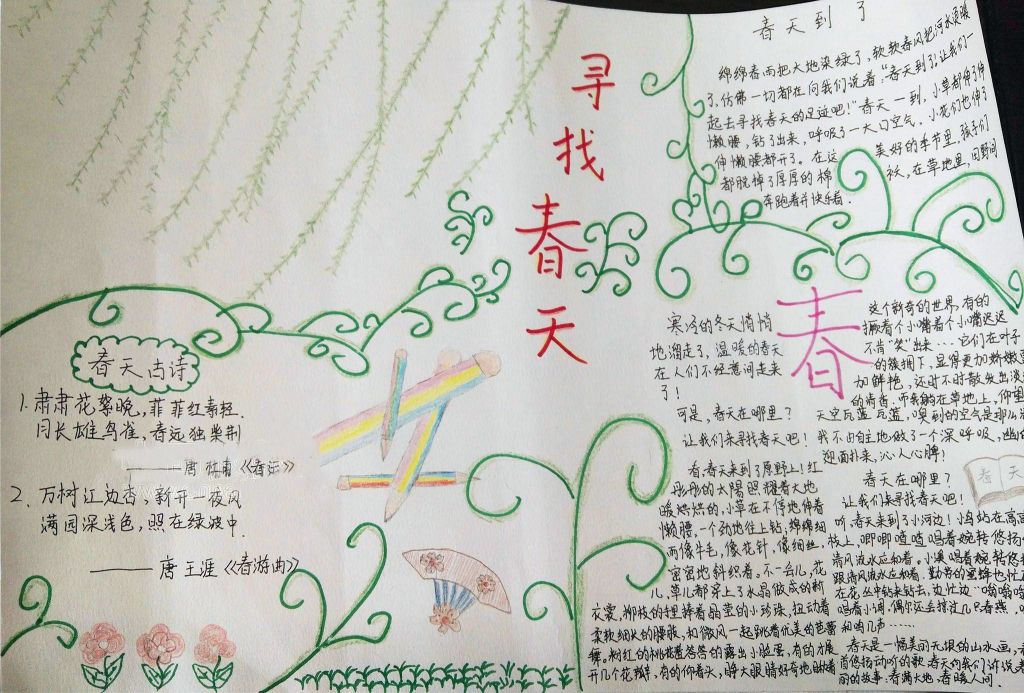 寻找春天
春天到了
绵绵春雨把大地染绿了,软软春风把河水
了,仿佛一切都在向我们说着:“春天到了!让我们一
起去寻找春天的足迹吧!”春天一到,小草都伸了伸
懒腰,钻了出来,呼吸了一大口空气,小花们也伸了
伸懒腰都开了。在这美好的季节里,孩子们
都脱掉了厚厚的棉袄,在草地里,田野间
奔跑着并快乐着.
春天古诗
1.肃肃花絮晚,菲菲红素轻.
日长雄鸟雀,春远独柴荆
唐 杜甫《春运》
2.万树江边杏,新开一夜风
满园深浅色,照在绿波中.
——唐 王涯《春游曲》
春
寒冷的冬天悄悄
地溜走了,温暖的春天
在人们不经意间走来
了!
可是,春天在哪里?
让我们来寻找春天吧!
看,春天来到了原野上!红
彤彤的太阳照耀着大地
暖烘烘的,小草在不停地伸着
懒腰,一个劲地往上钻;绵绵细
雨像牛毛,像花针,像细丝,
密密地斜织着,不一会儿,花
儿,草儿都穿上了水晶做成的新
衣裳,柳枝的捏捧着晶莹的小珍珠,扭动着
柔软细长的腰肢,和微风一起跳着优美的芭蕾
舞.粉红的桃花羞答答的露出小脸蛋,有的才展
开几个花瓣,有的仰着头,睁大眼睛好奇地瞅着
这个新奇的世界,有的
撅着个小嘴着个小嘴迟迟
不肯“笑”出来……它们在叶子
的簇拥下,显得更加娇嫩
加鲜艳,还时不时散发出淡
的清香.而我躺在草地上,仰望
天空瓦蓝瓦蓝,嗅到的空气是那么
我不由自主地做了一个深呼吸,幽
迎面扑来,沁人心脾!
春天在哪里?
让我们来寻找春天吧!
春天
听,春天来到了小河边!小鸟站在高高
枝上,唧唧喳喳唱着婉转悠扬
清风流水应和着.小溪唱着婉转悠
跟清风流水应和着,勤劳的蜜蜂也忙
在花丛中钻来钻去,边忙边“嗡嗡嗡
唱着小调,偶尔还会掠过几只春燕,
和鸣几声……
春天是一幅美丽无垠的山水画,
首悠扬动听的歌.春天向我们诉说着
丽的故事:春满大地,春暖人间.